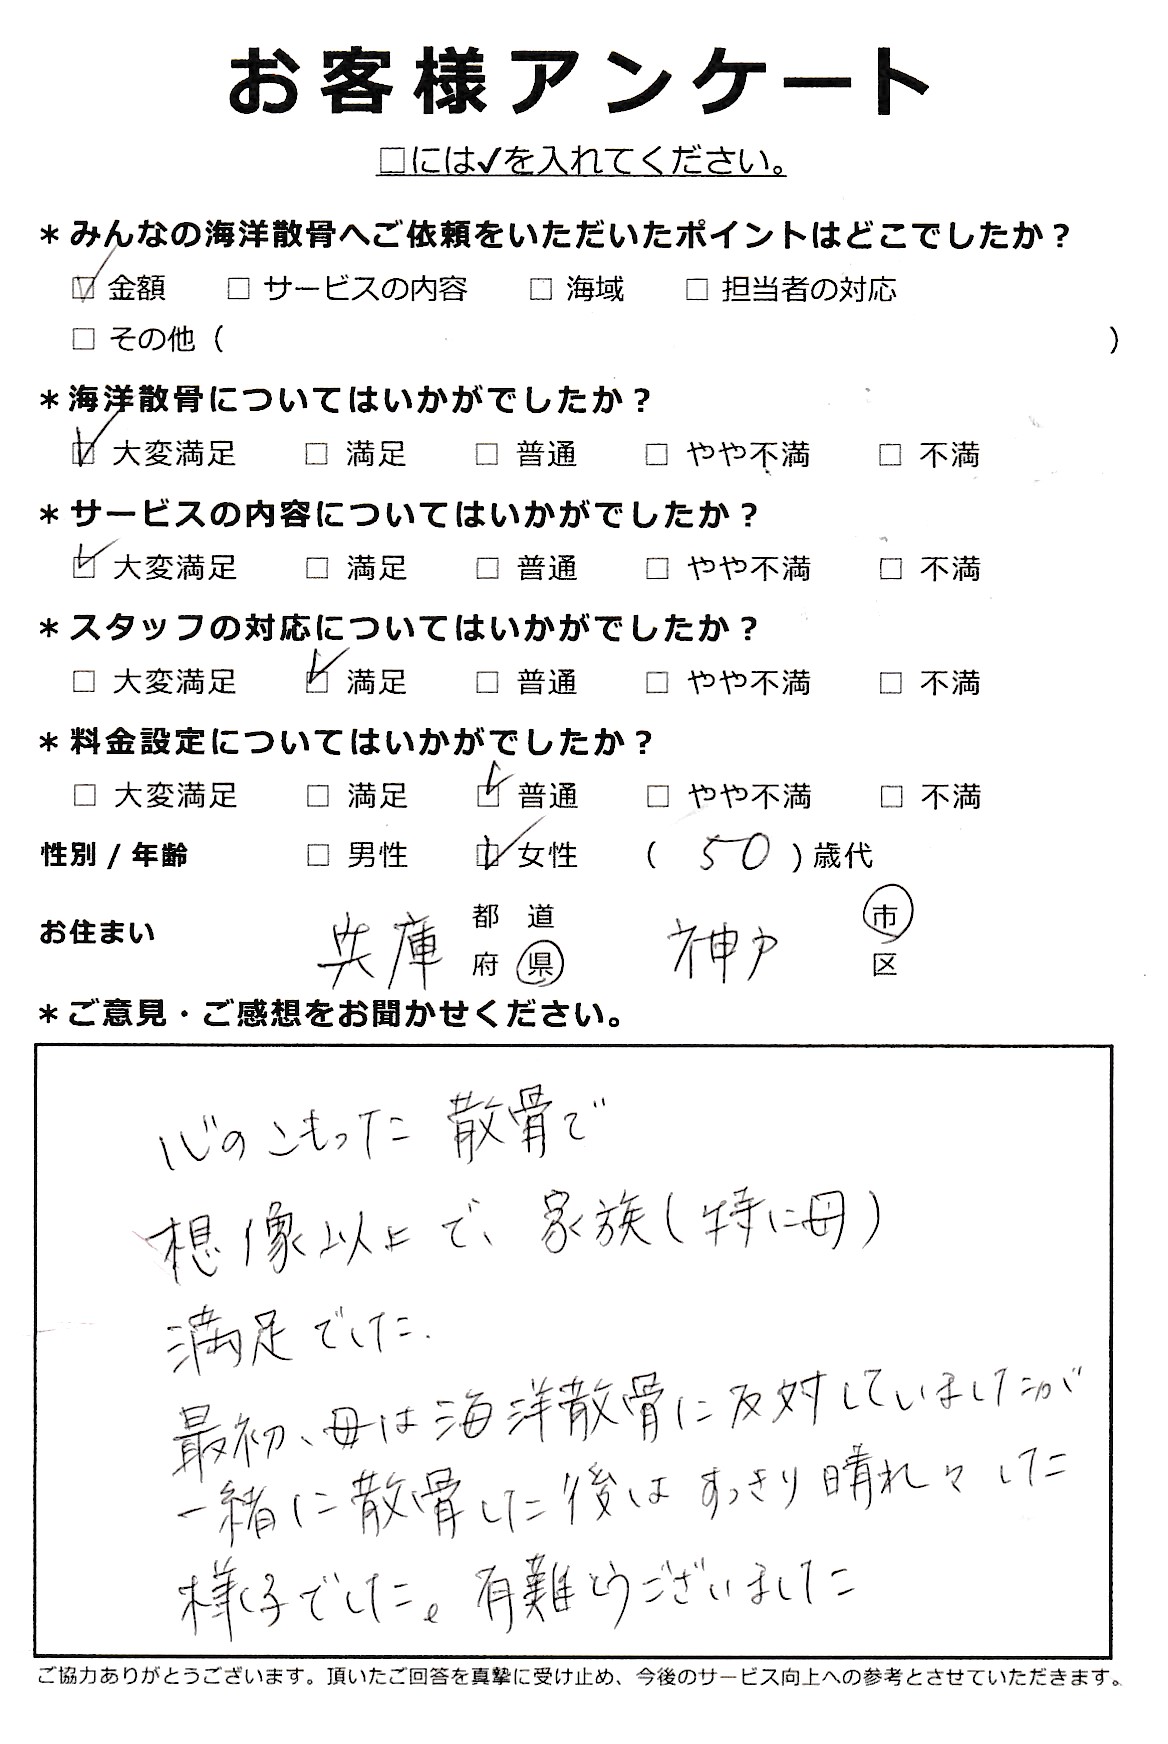 お客様アンケート
□には✓を入れてください。
＊みんなの海洋散骨へご依頼をいただいたポイントはどこでしたか？
☑ 金額 □ サービスの内容 □ 海域 □ 担当者の対応
□ その他（ ）
＊海洋散骨についてはいかがでしたか？
☑ 大変満足 □ 満足 □ 普通 □ やや不満 □ 不満
＊サービスの内容についてはいかがでしたか？
☑ 大変満足 □ 満足 □ 普通 □ やや不満 □ 不満
＊スタッフの対応についてはいかがでしたか？
□ 大変満足 ☑ 満足 □ 普通 □ やや不満 □ 不満
＊料金設定についてはいかがでしたか？
□ 大変満足 □ 満足 ☑ 普通 □ やや不満 □ 不満
性別 / 年齢 □ 男性 ☑ 女性 （ 50 ）歳代
お住まい 兵庫 都 道 府 県 神戸 市 区
＊ご意見・ご感想をお聞かせください。
心のこもった 散骨で
想像以上で、家族(特に母)
満足でした.
最初、母は海洋散骨に反対していましたが
一緒に散骨した後は すっきり晴れ々した
様子でした。有難とうございました
ご協力ありがとうございます。頂いたご回答を真摯に受け止め、今後のサービス向上への参考とさせていただきます。